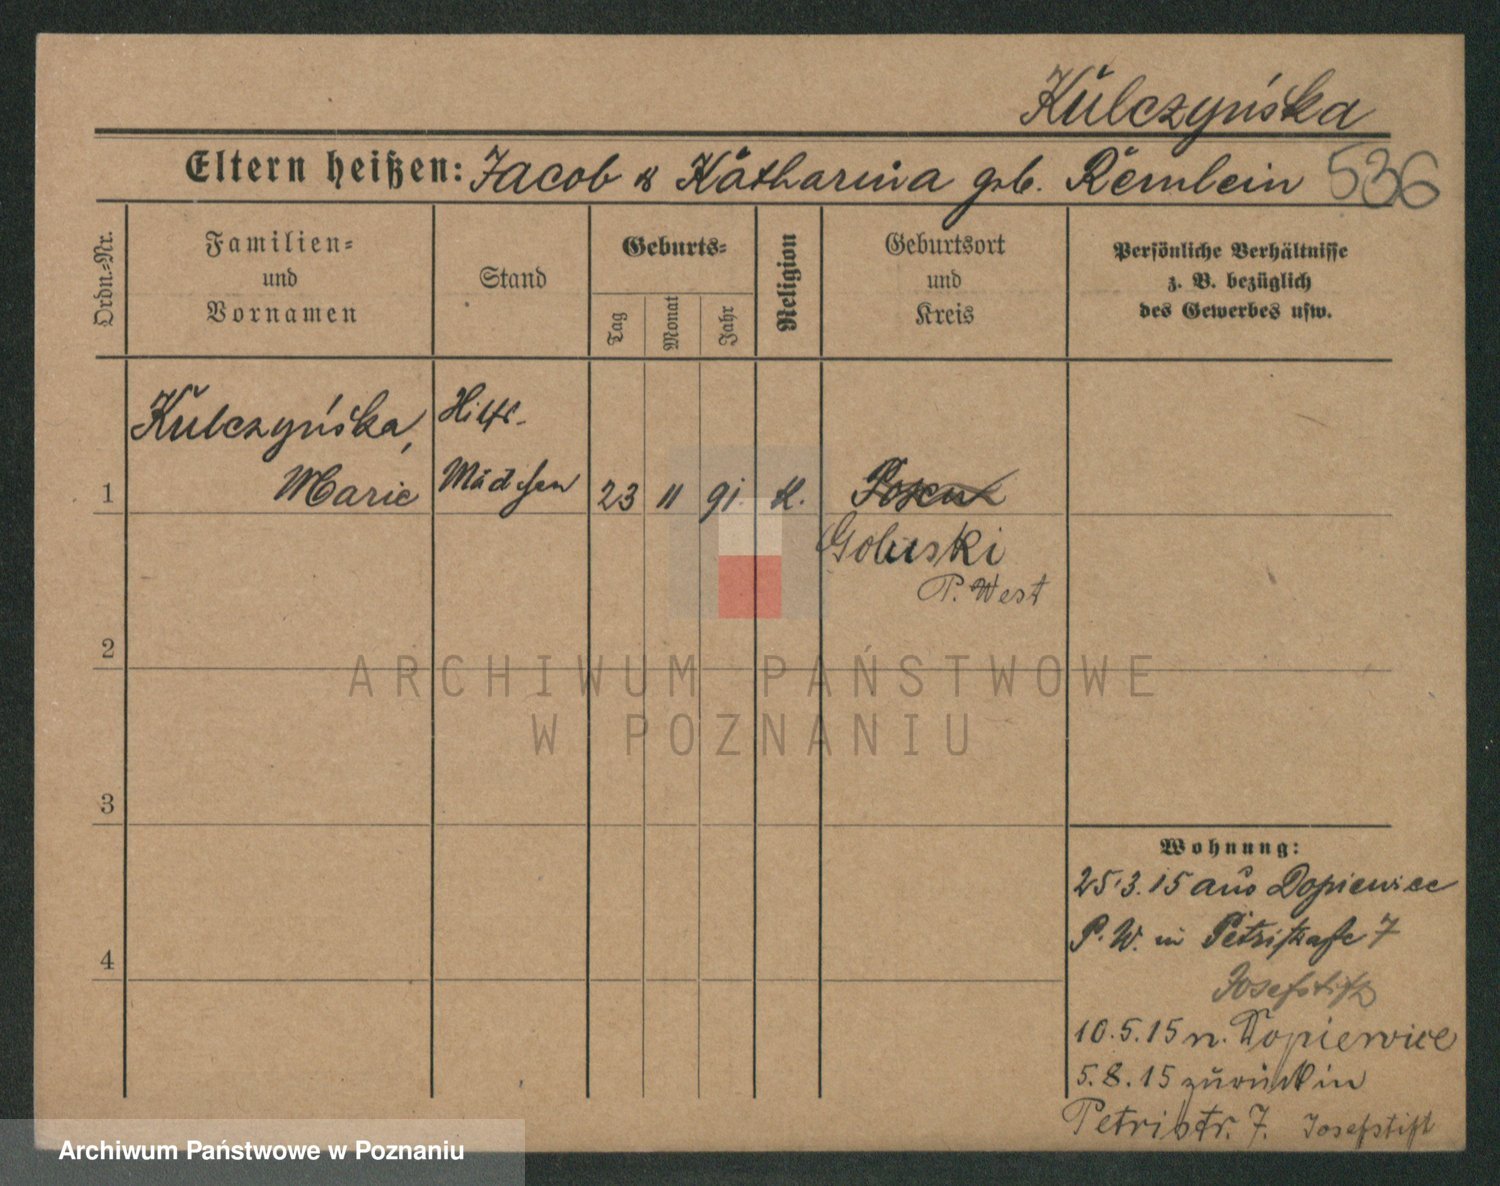 Kulczyńska
Eltern heißen: Jacob & Katharina geb. Remlein 536
Ordn.-Nr.
Familien-
und
Vornamen
Stand
Geburts-
Tag
Monat
Jahr
Religion
Geburtsort
und
Kreis
Persönliche Verhältnisse
z. B. bezüglich
des Gewerbes usw.
Kulczyńska, Hilfs-
1 Marie Mädchen 23 11 91. K. Posen
Goluski
P. West
2
3
4
ARCHIWUM PAŃSTWOWE
W POZNANIU
Wohnung:
25.3.15 aus Dopiewiec
P. W. in Petristraße 7
Josefstift
10.5.15 n. Dopiewice
5.8.15 zurück in
Petristr. 7. Josefstift
Archiwum Państwowe w Poznaniu